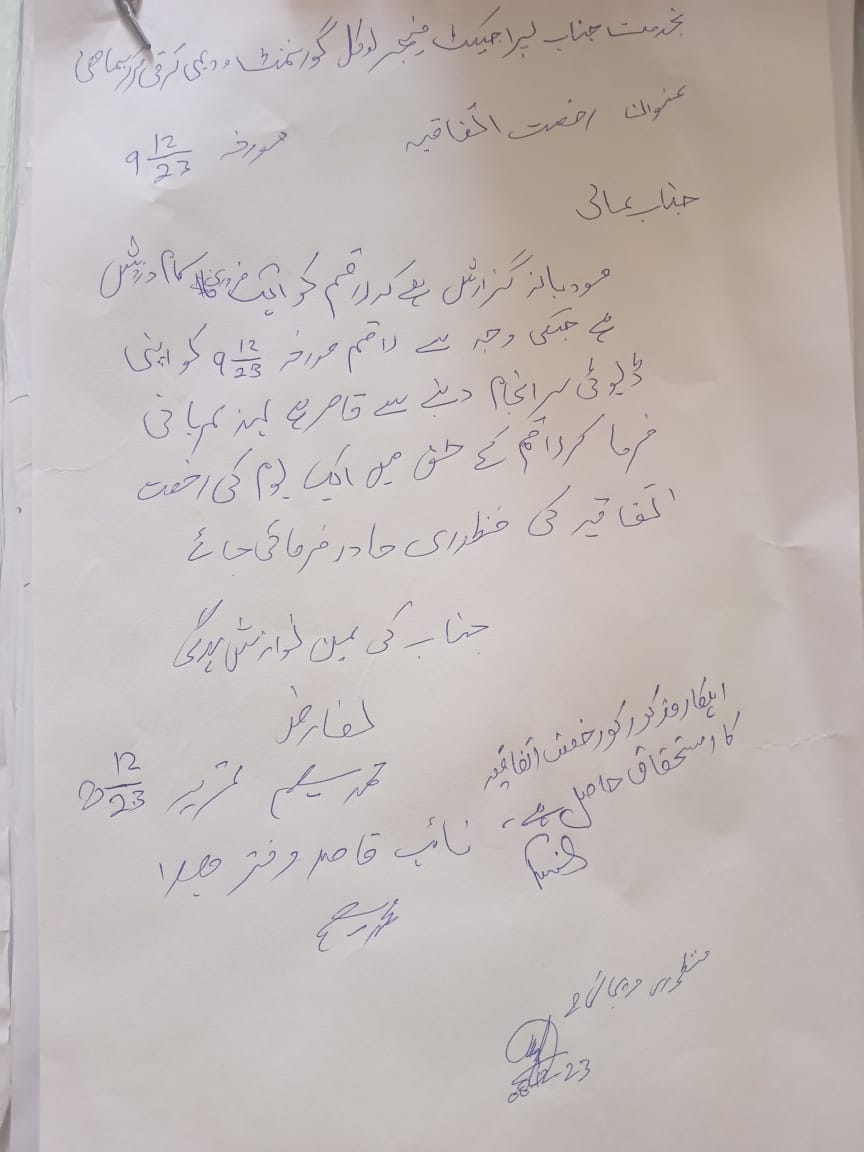 بخدمت جناب پراجیکٹ منیجر لوکل گورنمنٹ و دیہی ترقی مرکز
عنوان رخصت اتفاقیہ مورخہ 9 12/23
جناب عالی
مودبانہ گزارش ہے کہ راقم کو ایک ضروری کام درپیش
ہے جسکی وجہ سے راقم مورخہ 9 12/23 کو اپنی
ڈیوٹی سرانجام دینے سے قاصر ہے لہذا مہربانی
فرما کر راقم کے حق میں ایک یوم کی رخصت
اتفاقیہ کی منظوری صادر فرمائی جائے
جناب کی عین نوازش ہوگی
العارض
محمد سلیم تحریر 8 12/23
نائب قاصد دفتر ھذا
اہلکار مذکور کو رخصت اتفاقیہ
کا استحقاق حاصل ہے۔
منظوری دی جاتی ہے
08-12-23